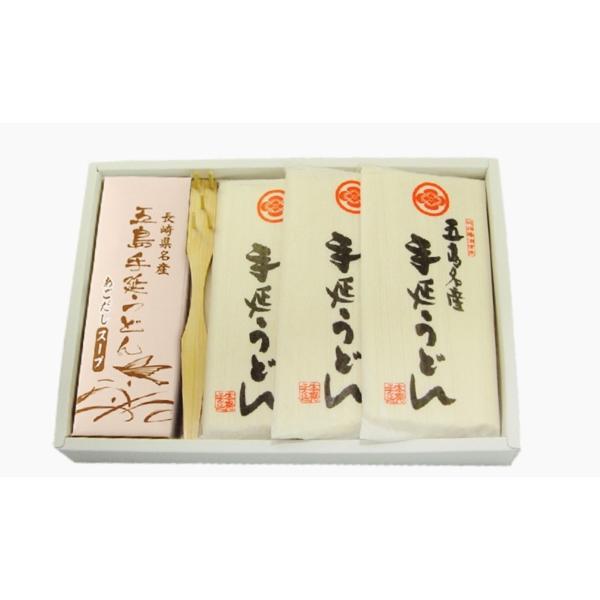 長崎県名産
五島手延うどん
あごだし
スープ
手延うどん
手延うどん
五島名産
手延うどん